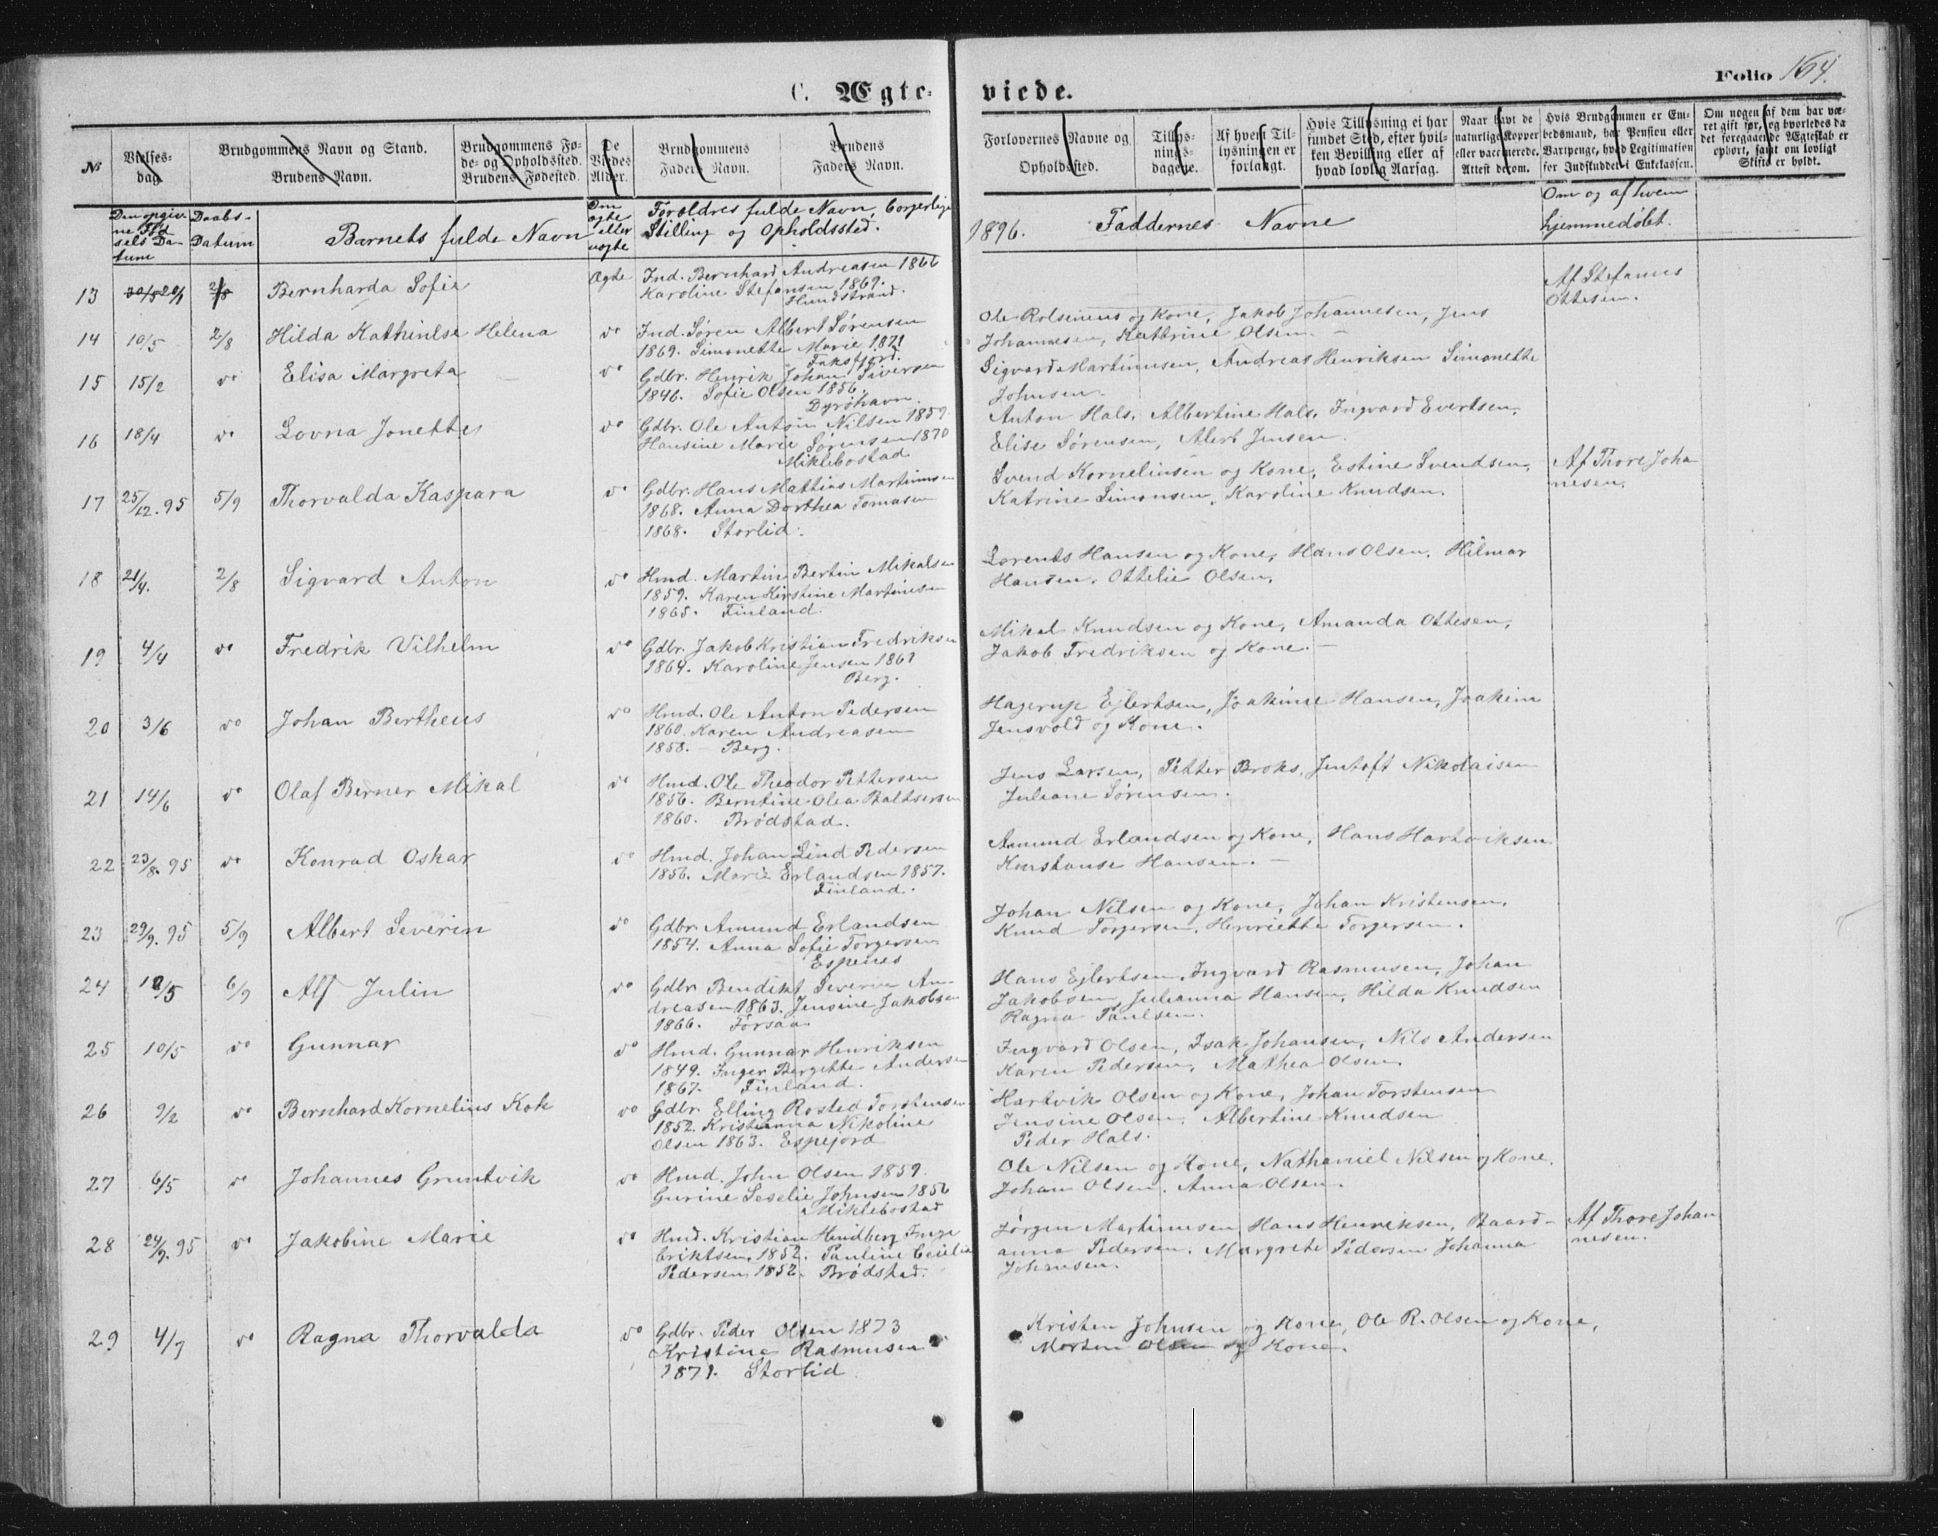 C. Ægte-
viede.
Folio 164.
№
Vielses-
dag.
Brudgommens Navn og Stand.
Brudens Navn.
Brudgommens Fø-
de- og Opholdssted.
Brudens Fødested.
De
Viedes
Alder.
Brudgommens
Faders Navn.
Brudens
Faders Navn.
Forlovernes Navne og
Opholdssted.
Tillys-
nings-
dagene.
Af hvem Til-
lysningen er
forlangt.
Hvis Tillysning ei har
fundet Sted, efter hvil-
ken Bevilling eller af
hvad lovlig Aarsag.
Naar havt de
naturlige Kopper
eller vaccinerede.
Attest derom.
Hvis Brudgommen er Em-
bedsmand, har Pension eller
Vartpenge, hvad Legitimation
for Indskuddet i Enkekassen.
Om nogen af dem har væ-
ret gift før, og hvorledes da
det foregaaende Ægteskab er
ophørt, samt om lovligt
Skifte er holdt.
Den opgiv
ne Fød
sels Da-
tum
Daabs-
Datum
Barnets fulde Navn
Om
ægte
eller
uægte
Forældres fulde Navn, borgerlige
Stilling og Opholdssted.
1896. Faddernes Navne
Om og af hvem
hjemmedøbt.
13 2/8 Bernharda Sofie Ægte Ind. Bernhard Andreasen 1866
Karoline Stefansen 1869.
Hundstrand.
Af Stefanus
Ottesen.
14 10/5 2/8 Hilda Kathinlse Helena vº Ind. Søren Albert Sørensen
1869. Simonette Marie 1871
Faksfjord.
Ole Rolsenius og Kone, Jakob Johannesen, Jens
Johannesen, Kathrine Olsen. -
15 15/2 vº Elisa Margreta vº Gdbr. Henrik Johan Siversen
1846. Sofie Olsen 1856.
Dyröhavn.
Sigvard Martinusen, Andreas Henriksen Simonette
Johnsen.
16 18/4 vº Lovna Jonette vº Gdbr. Ole Anton Nilsen 1859.
Hansine Marie Sørensen 1870
Miklebostad
Anton Hals, Albertine Hals, Ingvard Evertsen,
Elise Sørensen, Alert Jensen.
17 25/12. 95 5/9 Thorvalda Kaspara vº Gdbr. Hans Mathias Martinusen
1868. Anna Dorthea Tomasen
1868. Storlid.
Svend Korneliusen og Kone, Estine Svendsen,
Katrine Simonsen, Karoline Knudsen.
Af Thore Joha
nesen.
18 21/4. 2/8 Sigvard Anton vº Hmd. Martin Bertin Mikalsen
1859. Karen Kirstine Martinsen
1865. Finland.
Lorents Hansen og Kone, Hans Olsen, Hilmar
Hansen, Ottelie Olsen,
19 4/4 vº Fredrik Vilhelm vº Gdbr. Jakob Kristian Fredriksen
1864. Karoline Jensen 1861
Berg.
Mikal Knudsen og Kone, Amanda Ottesen,
Jakob Fredriksen og Kone. -
20 3/6 vº Johan Bertheus vº Hmd. Ole Anton Pedersen
1860. Karen Andreasen
1858. - Berg.
Hagerup Ejlertsen, Joakime Hansen, Joakim
Jensvold og Kone.
21 14/6 vº Olaf Berner Mikal vº Hmd. Ole Theodor Pettersen
1856. Berntine Olea Baltsersen
1860. Brödstad.
Jens Larsen, Petter Broks, Jentoft Nikolaisen
Juliane Sørensen.
22 23/8. 95 vº Konrad Oskar vº Hmd. Johan Lind Pedersen
1856. Marie Erlandsen 1857.
Finland.
Amund Erlandsen og Kone, Hans Hartviksen
Konstanse Hansen. -
23 29/9. 95 5/9 Albert Severin vº Gdbr. Amund Erlandsen
1854. Anna Sofie Torgersen
Espenes
Johan Nilsen og Kone, Johan Kristensen,
Knud Torgersen, Henriette Torgersen.
24 6/9 Alf Julin vº Gdbr. Bendikt Severin An-
dreasen 1863. Jensine Jakobsen
1866. Forsaa
Hans Ejlertsen, Ingvard Rasmusen, Johan
Jakobsen, Julianna Hansen, Hilda Knudsen
Ragna Paulsen.
25 10/5 vº Gunnar vº Hmd. Gunnar Henriksen
1849. Inger Bergette Andersen
1867. Finland.
Ingvard Olsen, Isak Johansen, Nils Andersen
Karen Pedersen, Mathea Olsen.
26 9/2 vº Bernhard Kornelius Kok vº Gdbr. Elling Rosted Torstensen
1852. Kristianna Nikoline
Olsen 1863. Espejord
Hartvik Olsen og Kone, Johan Torstensen
Jensine Olsen, Albertine Knudsen
Peder Hals.
27 6/5 vº Johannes Gruntvik vº Hmd. John Olsen 1859.
Gurine Seselie Johnsen 1856
Miklebostad
Ole Nilsen og Kone, Nathaniel Nilsen og Kone.
Johan Olsen. Anna Olsen.
28 24/9. 95 vº Jakobine Marie vº Hmd. Kristian Hindberg Inge
briktsen 1852. Pauline Cecilie
Pedersen 1852. Brödstad.
Jørgen Martinusen Hans Henriksen, Baard-
anna Pedersen. Margrete Pedersen Johanna
Johansen.
Af Thore Johan
nesen.
29 4/7 vº Ragna Thorvalda vº Gdbr. Peder Olsen 1873
Kristine Rasmusen
1871. Storlid
Kristen Johnsen og Kone, Ole R. Olsen og Kone,
Morten Olsen og Kone.